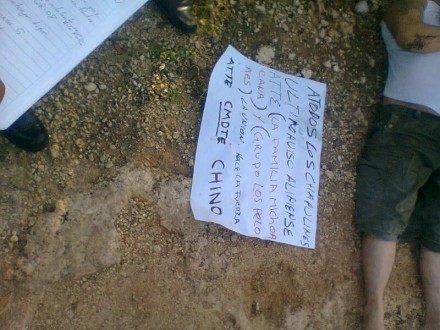 ATODOS LOS CHAPULINES
ULTIMOAVISO ALINENSE
ATTE (LA FAMILIA MICHOA
CANA) Y (GRUPO LOS PELO
NES) LA UNION, HACE LA FUERZA
ATTE CMDTE. CHINO